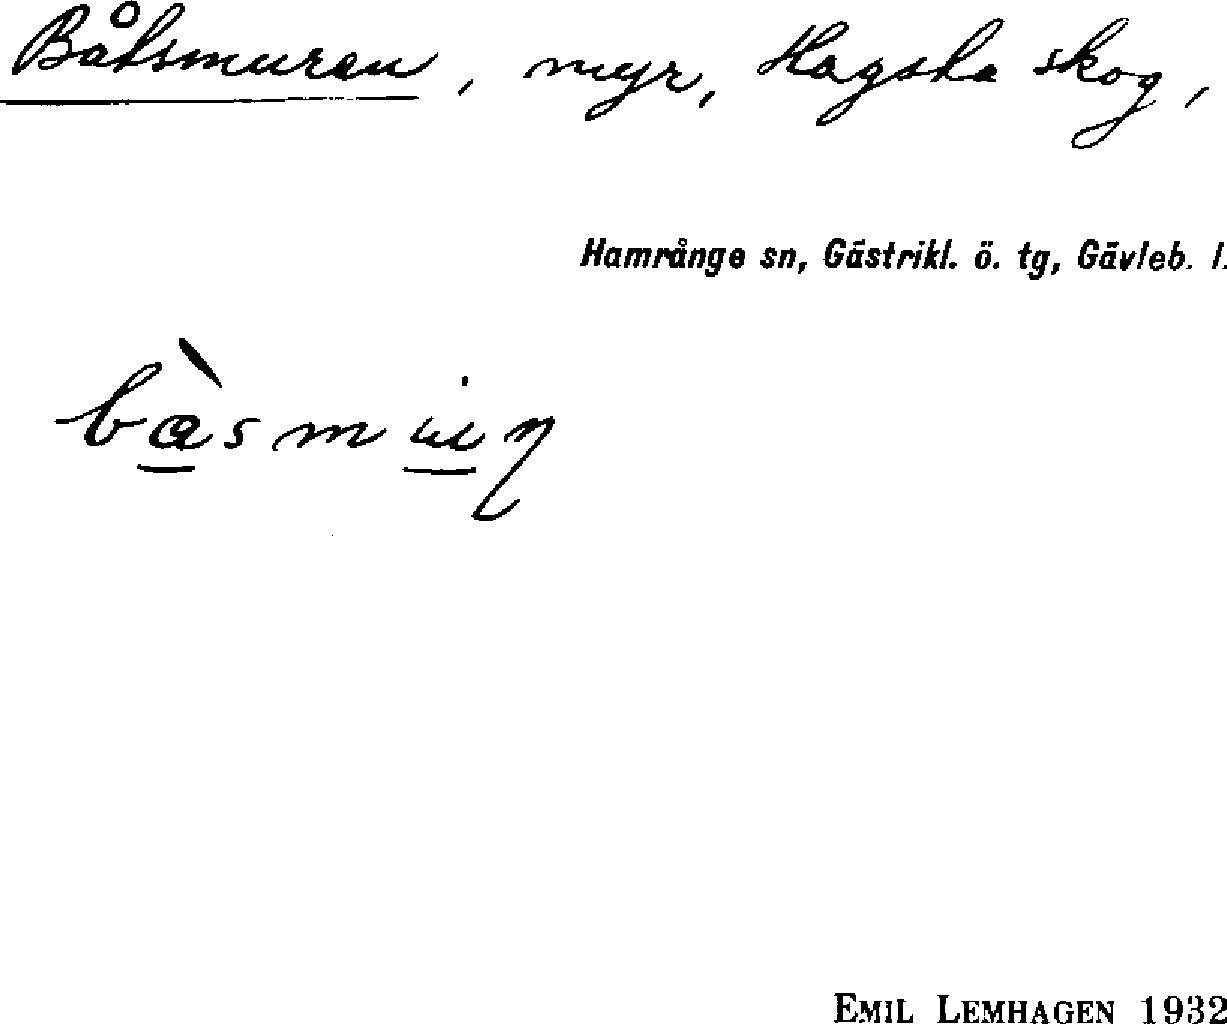 Båtsmuren, myr, Hagsta skog,
Hamrånge sn, Gästrikl. ö. tg, Gävleb. l.
EMIL LEMHAGEN 1932